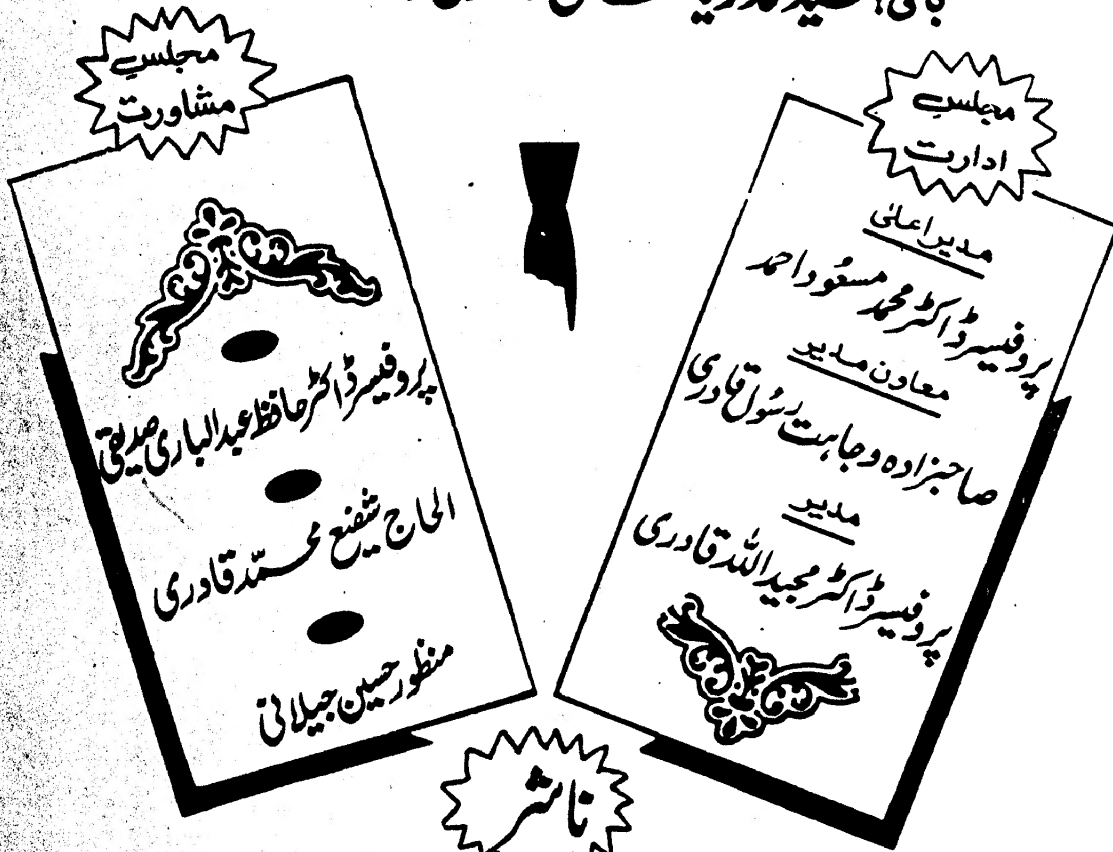 بانی: سید محمد ریاست علی قادری
مجلسِ
ادارت
مدیر اعلیٰ
پروفیسر ڈاکٹر محمد مسعود احمد
معاون مدیر
صاحبزادہ وجاہت رسول قادری
مدیر
پروفیسر ڈاکٹر مجید اللہ قادری
مجلسِ
مشاورت
پروفیسر ڈاکٹر حافظ عبدالباری صدیقی
الحاج شفیع محمّد قادری
منظور حسین جیلانی
ناشر